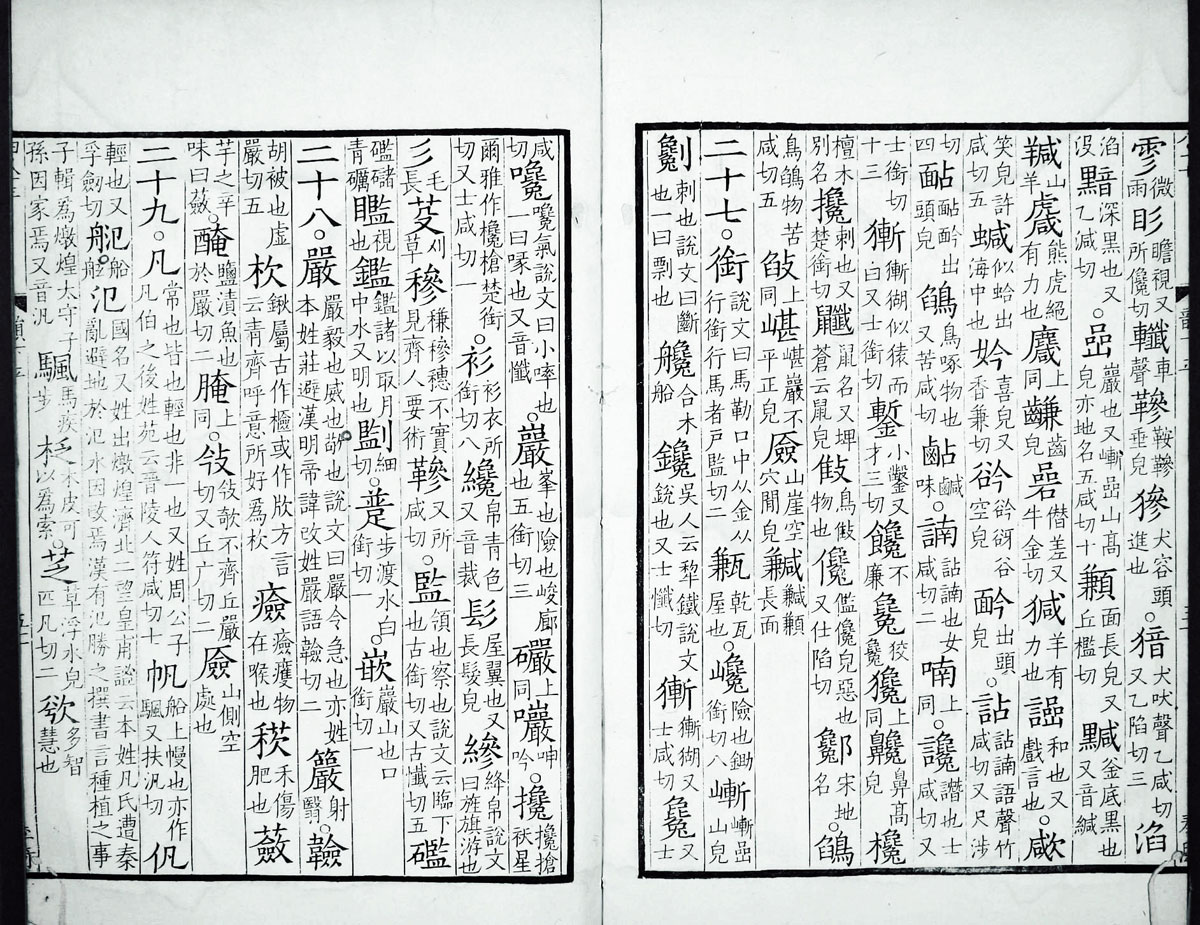 雸微雨㣎瞻視又所儳切轞車聲䫩鞍䫩垂皃獑犬容頭進也○猎犬吠聲乙咸切又乙陷切三㴸
淊深黑也又沒黯乙減切嵒巖也又嶃嵒山高皃亦地名五咸切十顩面長皃又丘檻切黬釜底黑也又音緘
羬山羊㺝熊虎絕有力也麙上同鹻齒皃碞僭差又牛金切㺂羊有力也諴和也又戲言也○㰹
笑皃許咸切五䗁似蛤出海中也㚣喜皃又香兼切谽谽谺谷空皃䩂出頭皃○詀詀諵語聲竹咸切又尺涉
切四䩞䩞䩂出頭皃鵮鳥啄物也又苦咸切䶢鹹味○諵詀諵也女咸切二喃上同○讒譖也士咸切又
士銜切十三獑獑猢似猿而白又士銜切鏨小鑿又才三切饞不廉毚狡毚㺥上同䶫鼻高皃欃
檀木別名攙刺也又楚銜切鼸鼠名又埤蒼云鼠皃㪠鳥㪠物也儳儖儳皃惡也又仕陷切酁宋地名○鵮
鳥鵮物苦咸切五㪠上同嵁嵁巖不平正皃㢛山崖空穴閒皃䫡䫡顩長面
二十七○銜說文曰馬勒口中从金从行銜行馬者戶監切二㼓乾瓦屋也○巉險也鋤銜切八嶃嶃嵒山皃
劖刺也說文曰斷也一曰剽也艬合木船鑱吳人云犂鐵說文銳也又士懺切獑獑猢又士咸切毚又士
咸切嚵嚵氣說文曰小啐也一曰喙也又音懺○巖峯也險也峻廊也五銜切三礹上同㘙呻吟○攙攙搶祅星
爾雅作欃槍楚銜切又士咸切一○衫衫衣所銜切八纔帛青色又音裁髟屋翼也又長髮皃縿絳帛說文曰旌旗游也
彡毛長芟刈草穇穇穇穗不實見齊人要術鬖又所○監領也察也說文云臨下也古銜切又古懺切五礛
礛䃴青礪覽視也鑑鑑諸以取月中水又明也㔋細切○䟅步渡水白銜切一○嵌巖山也口銜切一
二十八○嚴嚴毅也威也敬也說文曰嚴令急也亦姓本姓莊避漢明帝諱改姓嚴語䭑切二籤射翳○䭑
胡被也虛嚴切五杴鍬屬古作㰸或作㸝方言云青齊呼意所好為杴㿌㿌㿓物在喉也䅙禾傷肥也蘞
芋之辛味曰蘞○醃鹽漬魚也於嚴切二腌上同○㪁㪁㱃不齊丘嚴切又丘广切二㢛山側空處也
二十九○凡常也皆也輕也非一也又姓周公子凡伯之後姓苑云晉陵人符咸切七帆船上幔也亦作颿又扶汎切㐲
輕也又孚劒切舧船舷○氾國名又姓出燉煌濟北二望皇甫謐云本姓凡氏遭秦亂避地於氾水因改焉漢有氾勝之撰書言種植之事
子輯為燉煌太守子孫因家焉又音汎颿馬疾步柉木皮可以為索○芝草浮水皃匹凡切二欦多智慧也